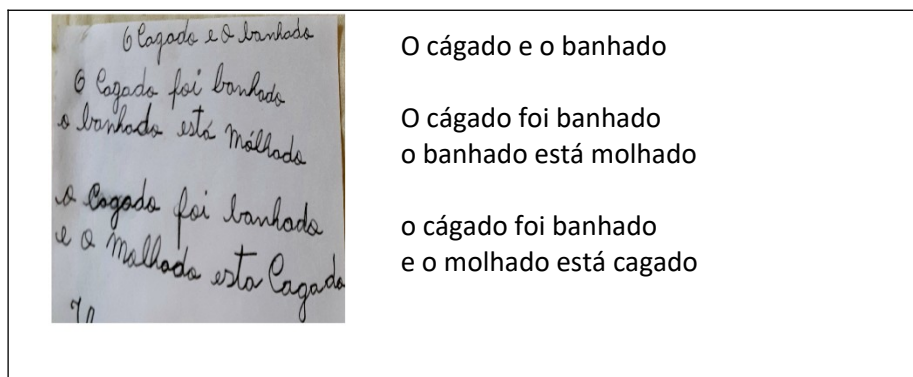 O Cagado e o banhado
O Cagado foi banhado
o banhado está mólhado
o Cagado foi banhado
e o Molhado esta Cagado
O cágado e o banhado
O cágado foi banhado
o banhado está molhado
o cágado foi banhado
e o molhado está cagado